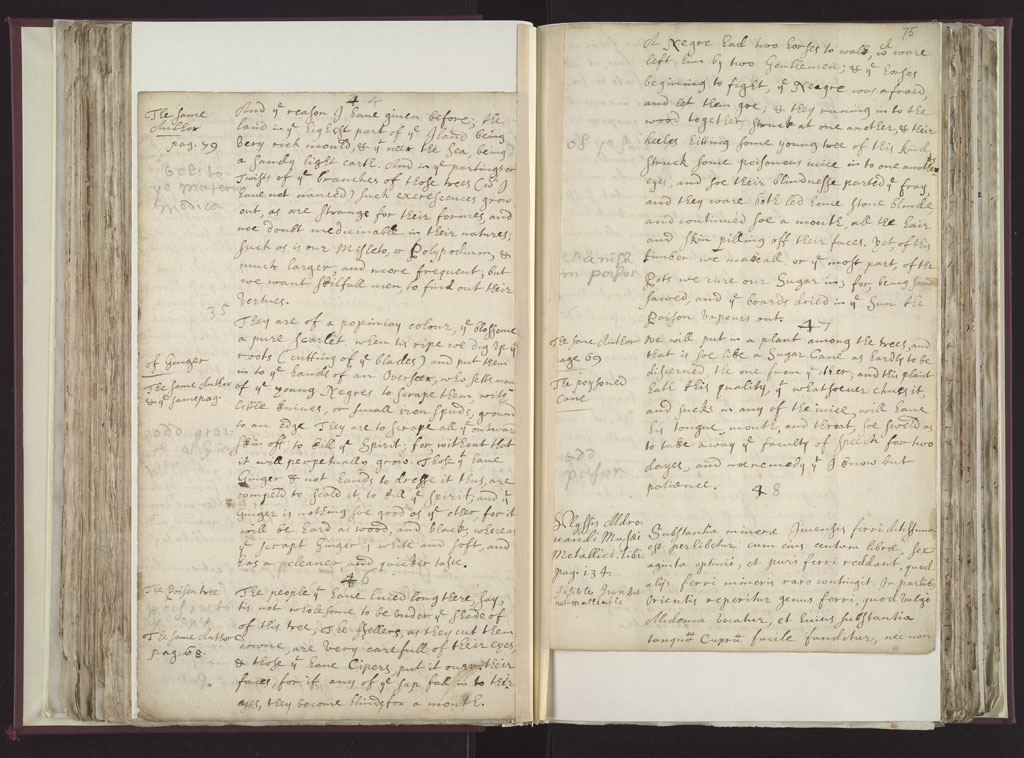 44
The same
Author
pag. 79
And ye reason I have given before; the
land in ye highest part of ye Iland being
very rich mould, & ye neer the Sea, being
a sandy light earth. And in ye partings or
Twists of ye branches of those trees (wch I
have not named) such excrescences grow
out, as are strange for their formes, and
noe doubt medicinable in their natures;
such as is our Misleto, or Polypodium, &
much larger, and more frequent; but
we want skilfull men, to find out their
vertues.
ye materia
medica
35
of Ginger
The same Author
& ye same pag.
They are of a popiniay colour, ye blossome
a pure scarlet, when tis ripe we dig up ye
roots (cutting of ye blades) and put them
in to ye hands of an Overseer, who setts many
of ye young Negres to scrape them with
little knives, or small iron spuds, ground
to an edge. They are to scrape all ye outward
skin off to kill ye Spirit; for without that
it will perpetually grow. Those yt have
Ginger & not hands to dresse it thus, are
compeld to scald it, to kill ye spirit; and yt
Ginger is nothing soe good as ye other, for it
will be hard as wood, and black, whereas
ye scrapt Ginger is white and soft, and
has a cleaner, and quicker taste.
46
The Poison tree
The same Author
pag. 68.
The people yt have lived long there, say,
tis not wholesome to be under ye shade of
of this tree. The fellers, as they cut them
downe, are very carefull of their eyes,
& those yt have Cipers, put it over their
faces, for if any of ye sap fall in to their
eyes, they become blind for a month.
75
A Negre had two horses to walk, wch ware
left him by two Gentlemen; & ye horses
beginning to fight, ye Neagre was afraid,
and let them goe; & they runing in to the
wood together, struck at one another, & their
heeles hitting some young tree of this kind,
struck some poisonous iuice in to one anothers
eyes, and soe their blindnesse parted ye fray,
and they ware both led home stone blinde
and continued soe a month, all the hair
and skin pilling off their faces. Yet of this
timber we make all, or ye most part, of the
Pots we cure our Sugar in; for, being
sawed, and ye boards dried in ye Sun the
Poison vapours out.
47
The same Author
page 69
The poysoned
Cane
We will put in a plant among the trees, and
that is soe like a Sugar Cane as hardly to be
discerned, the one from ye other, and this plant
hath this quality, yt whatsoever chues it
and sucks in any of the iuice, will have
his tongue, mouth, and throat, soe sweld as
to take away ye faculty of speech for two
dayes, and noe remedy yt I know but
patience.
add
poison
48
Ulyssis Aldro
uandi Musaei
Metallici. lib:
pag. 134.
fusible Iron but
not malleable
Substantia minerae Jnuensis ferri ditissima
est perhibetur cum eius centum librae, sex
aginta optimi, et puri ferri reddant, quod
alijs ferri mineris raro contingit. In partibus
Orientis reperitur genus ferri, quod vulgo
Alidema vocatur, et huius substantia
tanquam Cuprum facile funditur, nec non